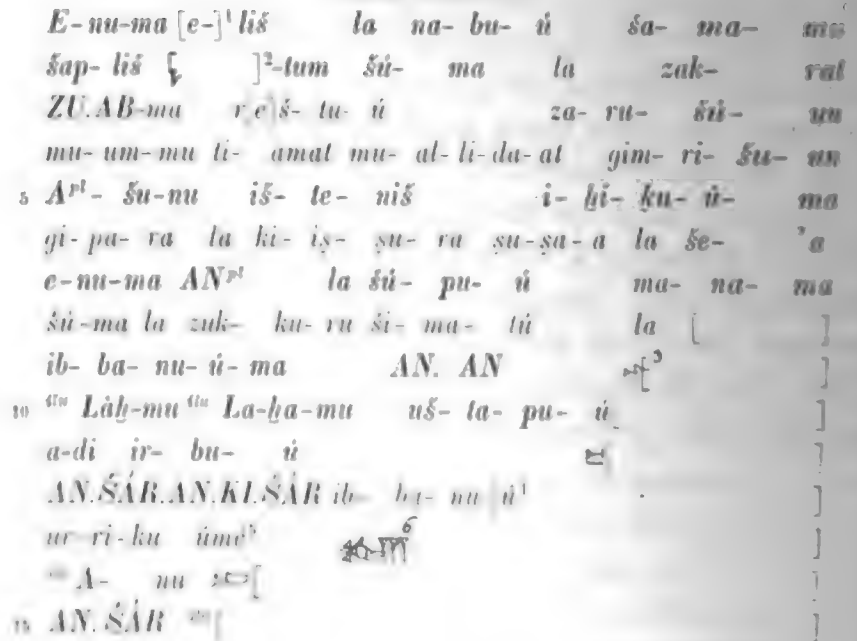 E-nu-ma [e-]¹ liš la na-bu-ú ša-ma-mu
šap-liš [ ]²-tum šú-ma la zak-rat
ZU.AB-ma r[e]š-tu-ú za-ru-šú-un
mu-um-mu ti-amat mu-al-li-da-at gim-ri-šu-un
5 Aᵖˡ-šu-nu iš-te-niš i-ḫi-ḳu-ú-ma
gi-pa-ra la ki-iṣ-ṣu-ra ṣu-ṣa-a la še-'a
e-nu-ma ANᵖˡ la šú-pu-ú ma-na-ma
šú-ma la zuk-ku-ru ši-ma-tú la [ ]
ib-ba-nu-ú-ma AN. AN [³ ]
10 ⁱˡᵘ Làḫ-mu ⁱˡᵘ La-ḫa-mu uš-ta-pu-ú ]
a-di ir-bu-ú [ ]
AN.ŠÁR.AN.KI.ŠÁR ib-ba-nu[ú ]
ur-ri-ku ⁶ ]
A-nu [ ]
15 AN.ŠÁR [ ]